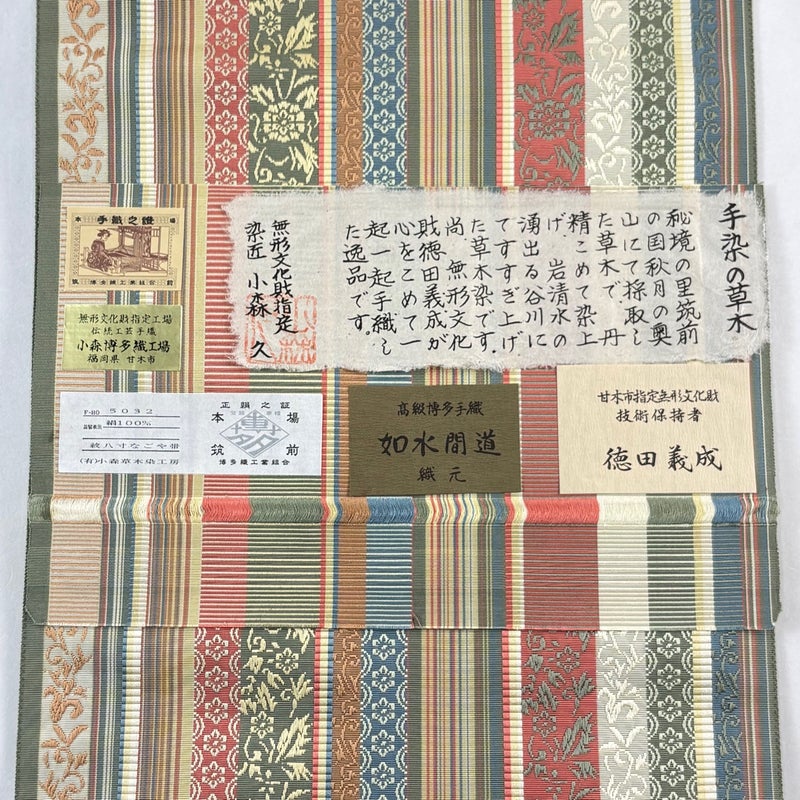 手織之證
本 場
筑 博多織工業組合 前
無形文化財指定工場
伝統工芸手織
小森博多織工場
福岡県 甘木市
手染の草木
秘境の里筑前
の国秋月の奥
山にて採取し
た草木で、丹
精こめて染上
げ、岩清水の
湧出る谷川に
てすすぎ上げ
た草木染です。
尚、無形文化
財徳田義成が
心をこめて一
起一起手織し
た逸品です。
無形文化財指定
染匠 小森 久
F-NO 5032
絹100%
紋八寸なごや帯
(有)小森草木染工房
本 場
筑 前
博多織工業組合
高級博多手織
如水間道
織元
甘木市指定無形文化財
技術保持者
徳田義成